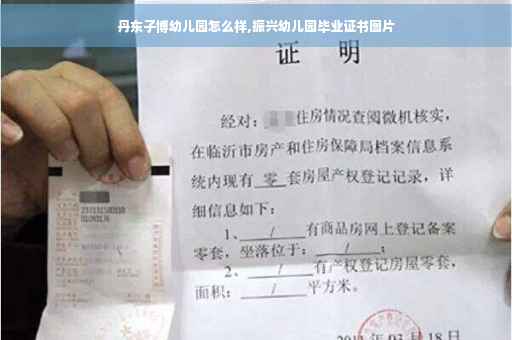 丹东子博幼儿园怎么样,振兴幼儿园毕业证书图片
证 明
经对：住房情况查阅微机核实，
在临沂市房产和住房保障局档案信息系
统内现有 零 套房屋产权登记记录，详
细信息如下：
1、 / 有商品房网上登记备案
零套，坐落位于： / ；
2、 / 有产权登记房屋零套，
面积： / 平方米。
03 月 18 日